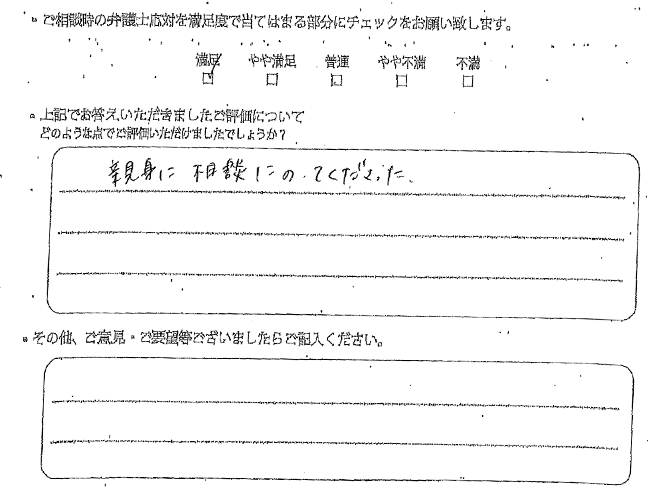 ご相談時の弁護士応対を満足度で当てはまる部分にチェックをお願い致します。
満足 やや満足 普通 やや不満 不満
上記でお答えいただきましたご評価について
どのような点でご評価いただけましたでしょうか？
親身に相談にのってくださった。
その他、ご意見・ご要望等ございましたらご記入ください。